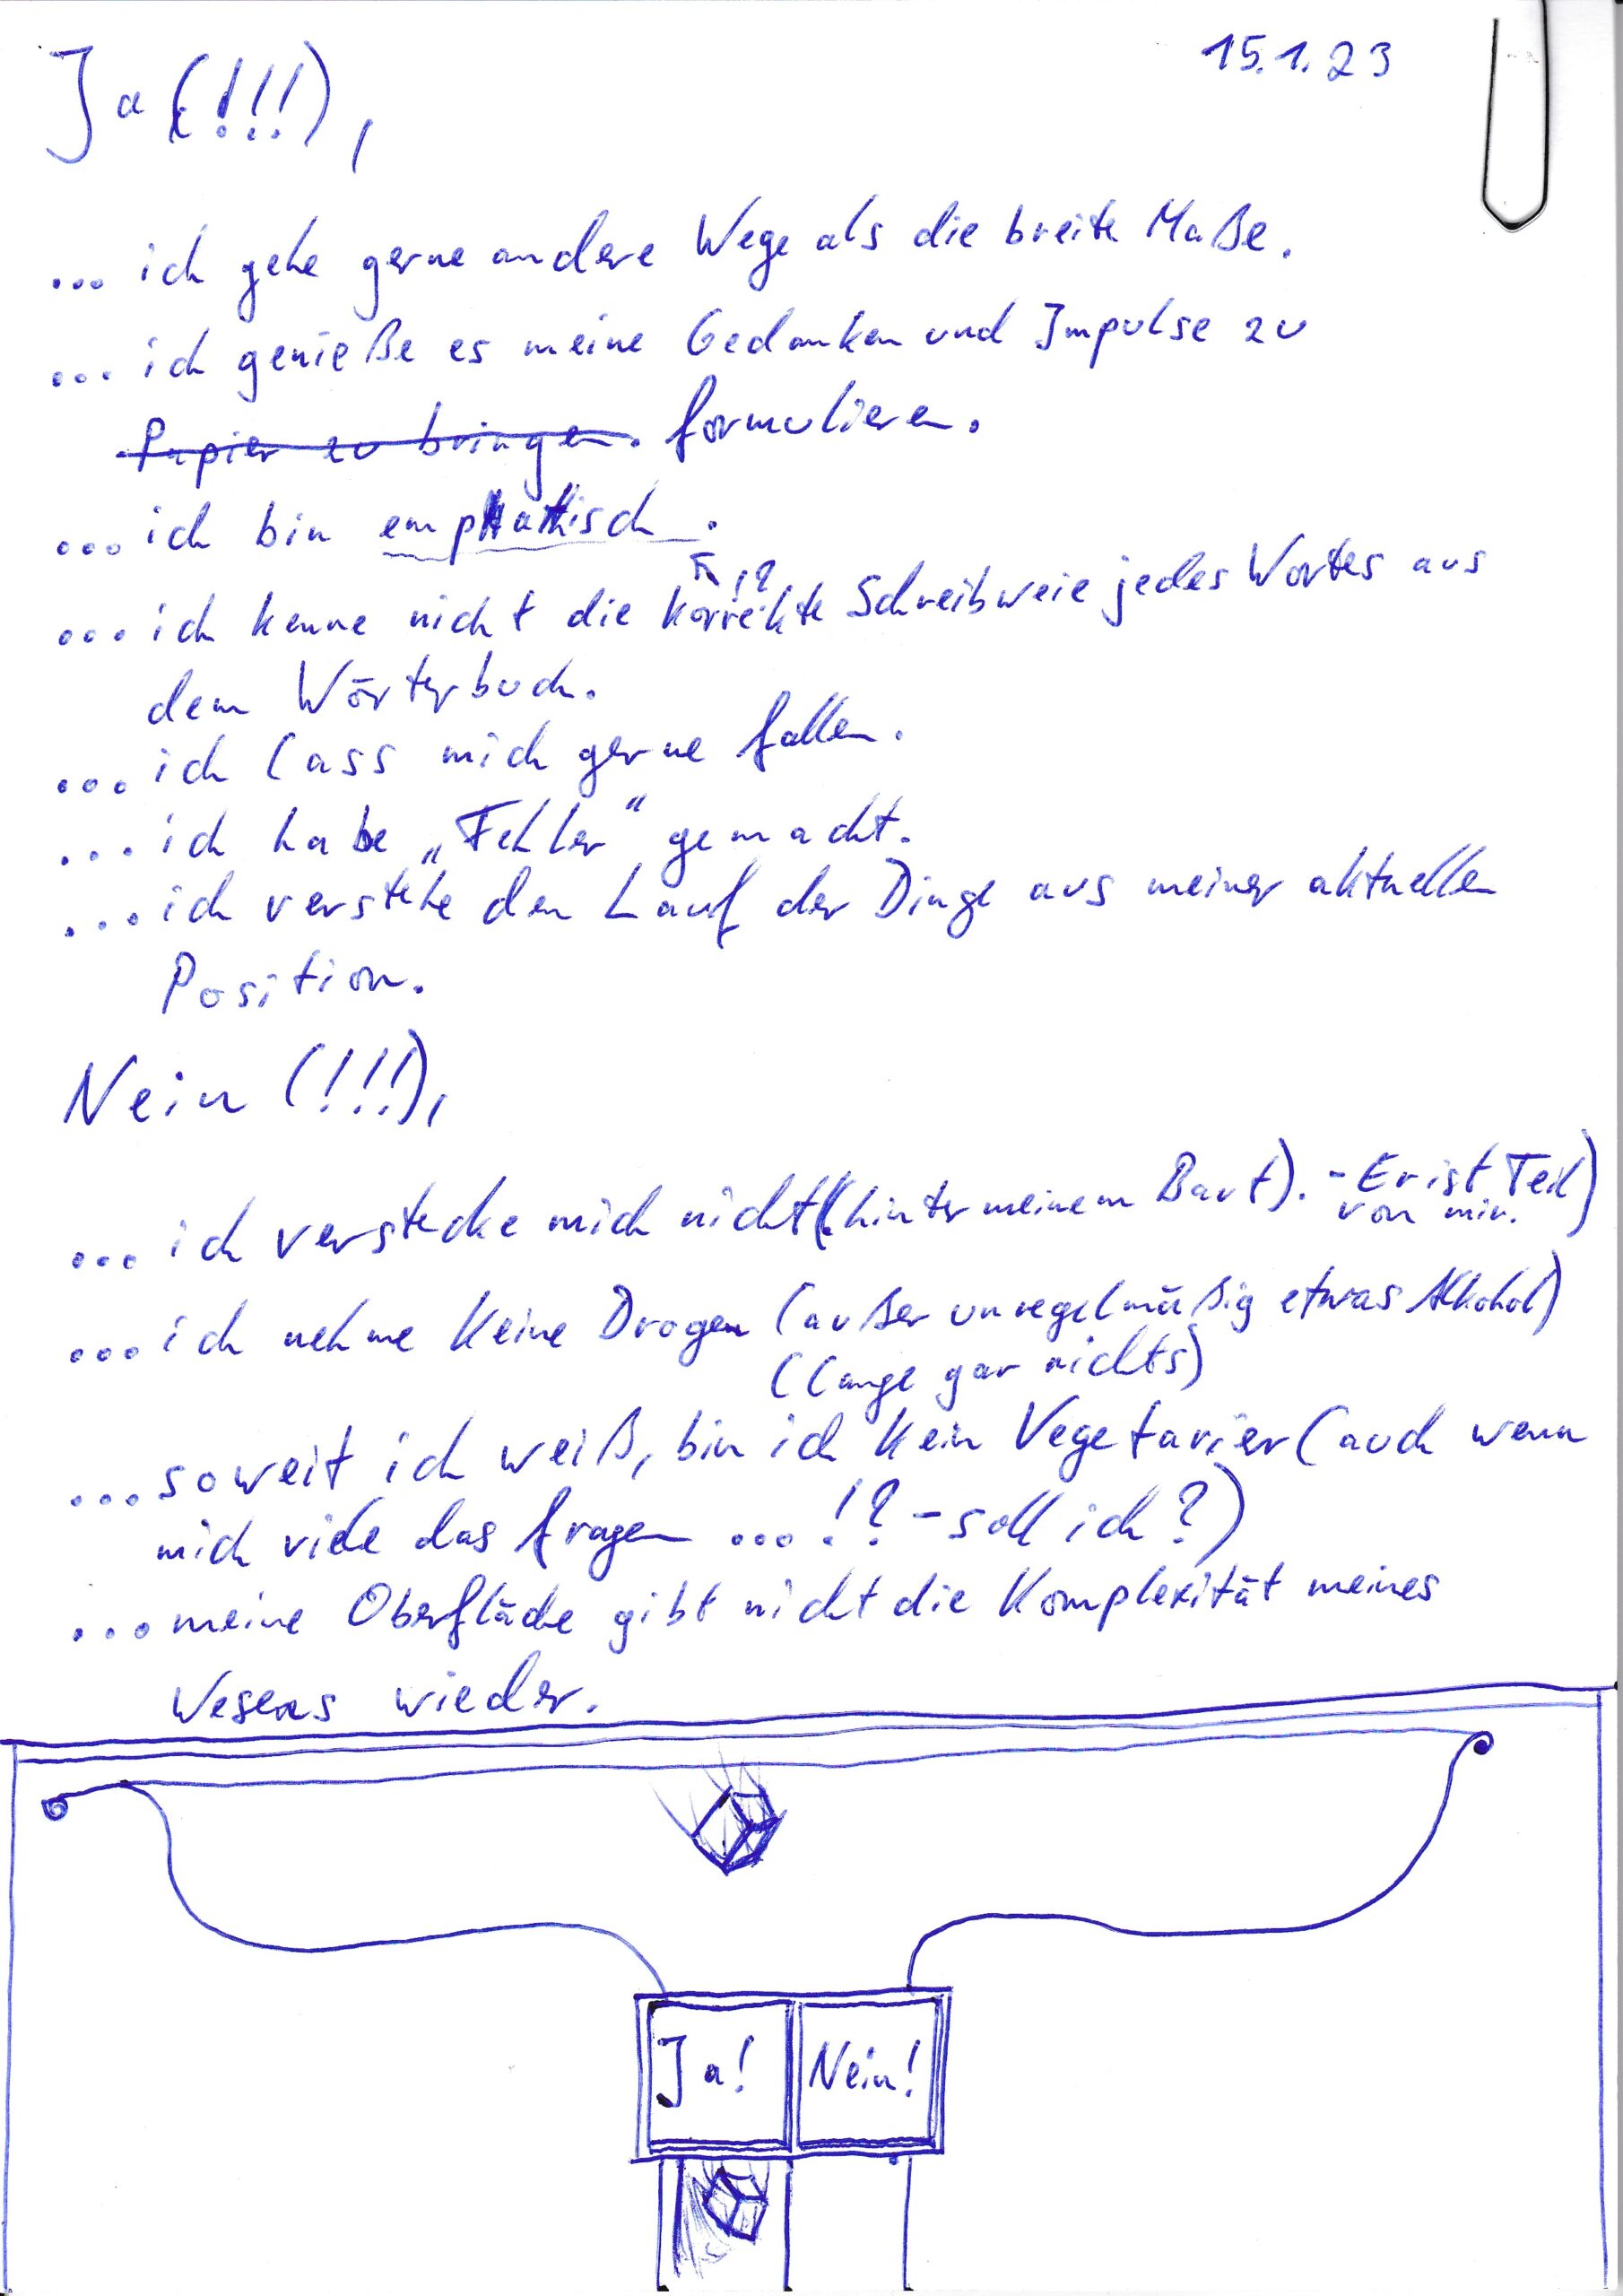 15.1.23
Ja (!!!),
... ich gehe gerne andere Wege als die breite Maße.
... ich genieße es meine Gedanken und Impulse zu
Papier zu bringen. formulieren.
... ich bin emphatisch.
!?
... ich kenne nicht die korrekte Schreibweie jedes Wortes aus
dem Wörterbuch.
... ich lass mich gerne fallen.
... ich habe „Fehler“ gemacht.
... ich verstehe den Lauf der Dinge aus meiner aktuellen
Position.
Nein (!!!),
... ich verstecke mich nicht (hinter meinem Bart). - Er ist Teil
von mir.)
... ich nehme keine Drogen (außer unregelmäßig etwas Alkohol)
(lange gar nichts)
... soweit ich weiß, bin ich kein Vegetarier (auch wenn
mich viele das fragen ... !? - soll ich?)
... meine Oberfläche gibt nicht die Komplexität meines
Wesens wieder.
Ja! Nein!